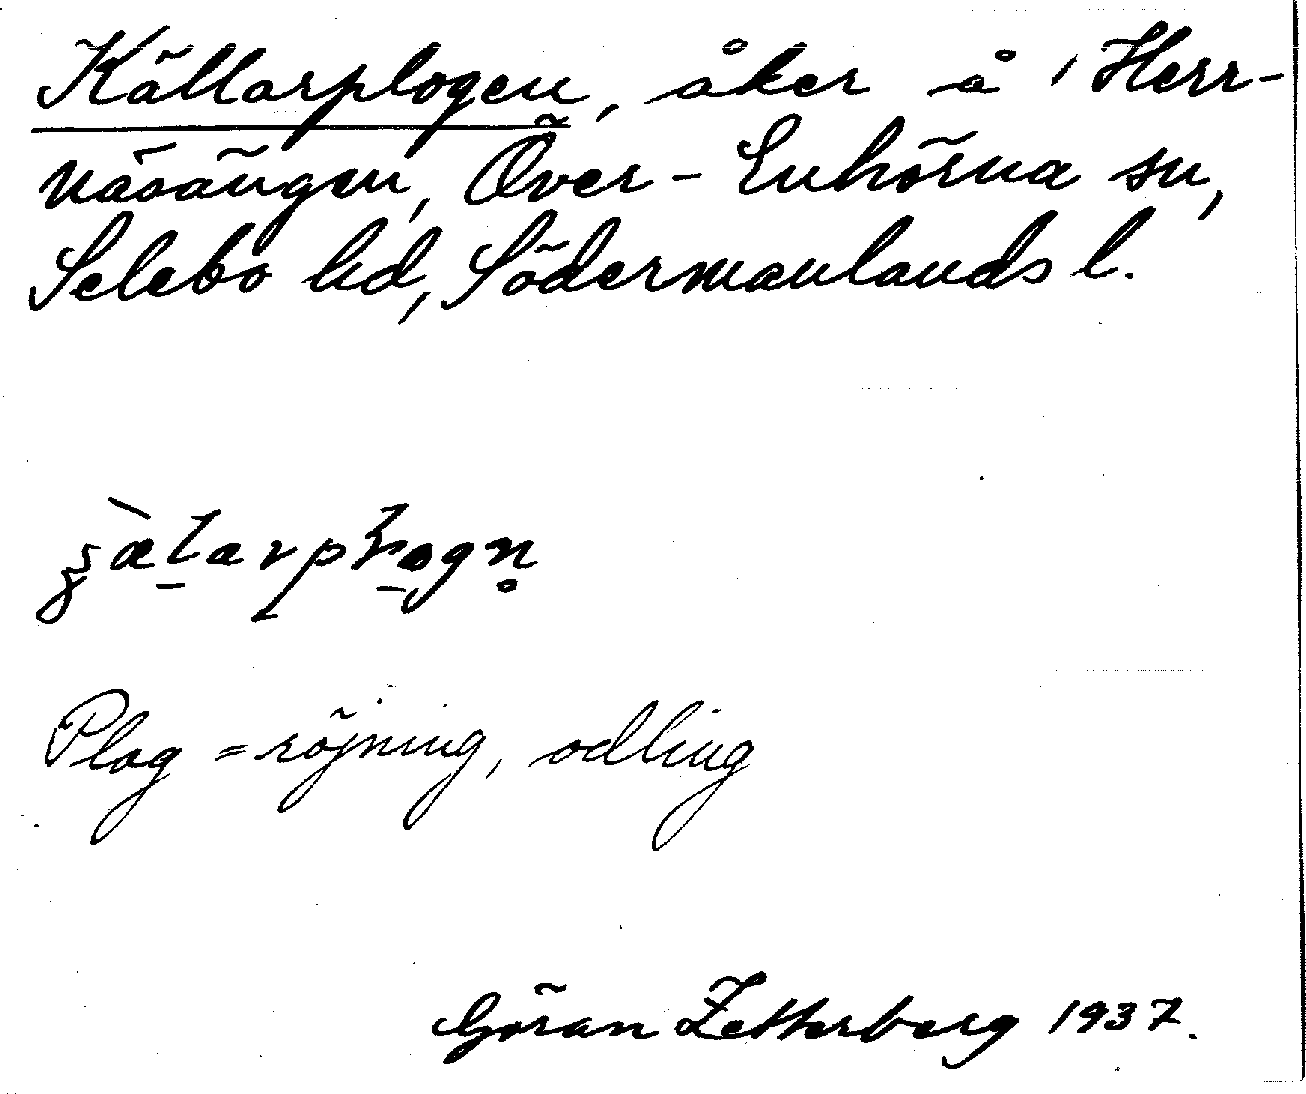 Källarplogen, åker å ' Herr-
näsängen, Över-Enhörna sn,
Selebo hd, Södermanlands l.
Plog = röjning, odling
Göran Zetterberg 1937.